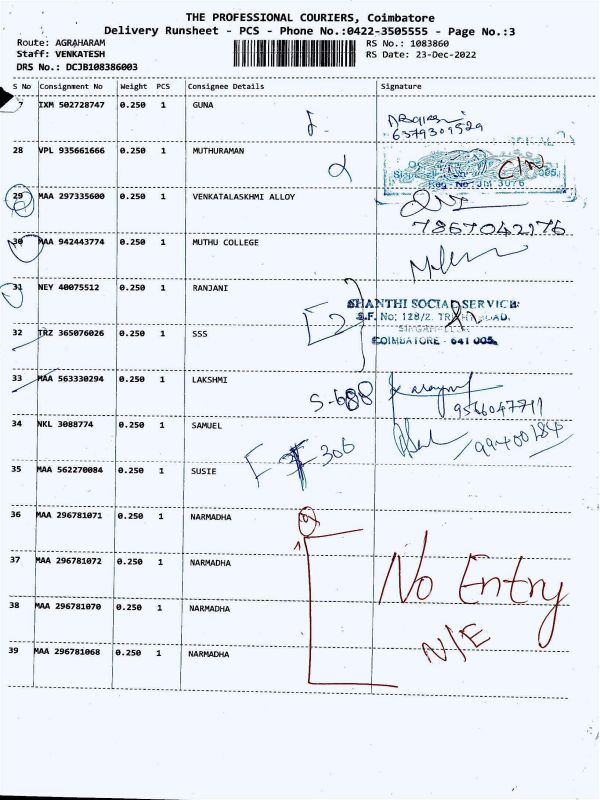 THE PROFESSIONAL COURIERS, Coimbatore
Delivery Runsheet - PCS - Phone No.:0422-3505555 - Page No.:3
Route: AGRAHARAM
RS No.: 1083860
Staff: VENKATESH
RS Date: 23-Dec-2022
DRS No.: DCJB108386003
S No Consignment No Weight PCS Consignee Details Signature
7 IXM 502728747 0.250 1 GUNA
6379309529
28 VPL 935661666 0.250 1 MUTHURAMAN
C/N
29 MAA 297335600 0.250 1 VENKATALASKHMI ALLOY
7867042176
30 MAA 942443774 0.250 1 MUTHU COLLEGE
31 NEY 40075512 0.250 1 RANJANI
SHANTHI SOCIAL SERVICE
S.F. No; 128/2. ROAD,
32 TRZ 365076026 0.250 1 SSS
COIMBATORE - 641 005.
33 MAA 563330294 0.250 1 LAKSHMI
S-688
9566047711
34 NKL 3088774 0.250 1 SAMUEL
F 306
35 MAA 562270084 0.250 1 SUSIE
36 MAA 296781071 0.250 1 NARMADHA
37 MAA 296781072 0.250 1 NARMADHA
No Entry
38 MAA 296781070 0.250 1 NARMADHA
N/E
39 MAA 296781068 0.250 1 NARMADHA